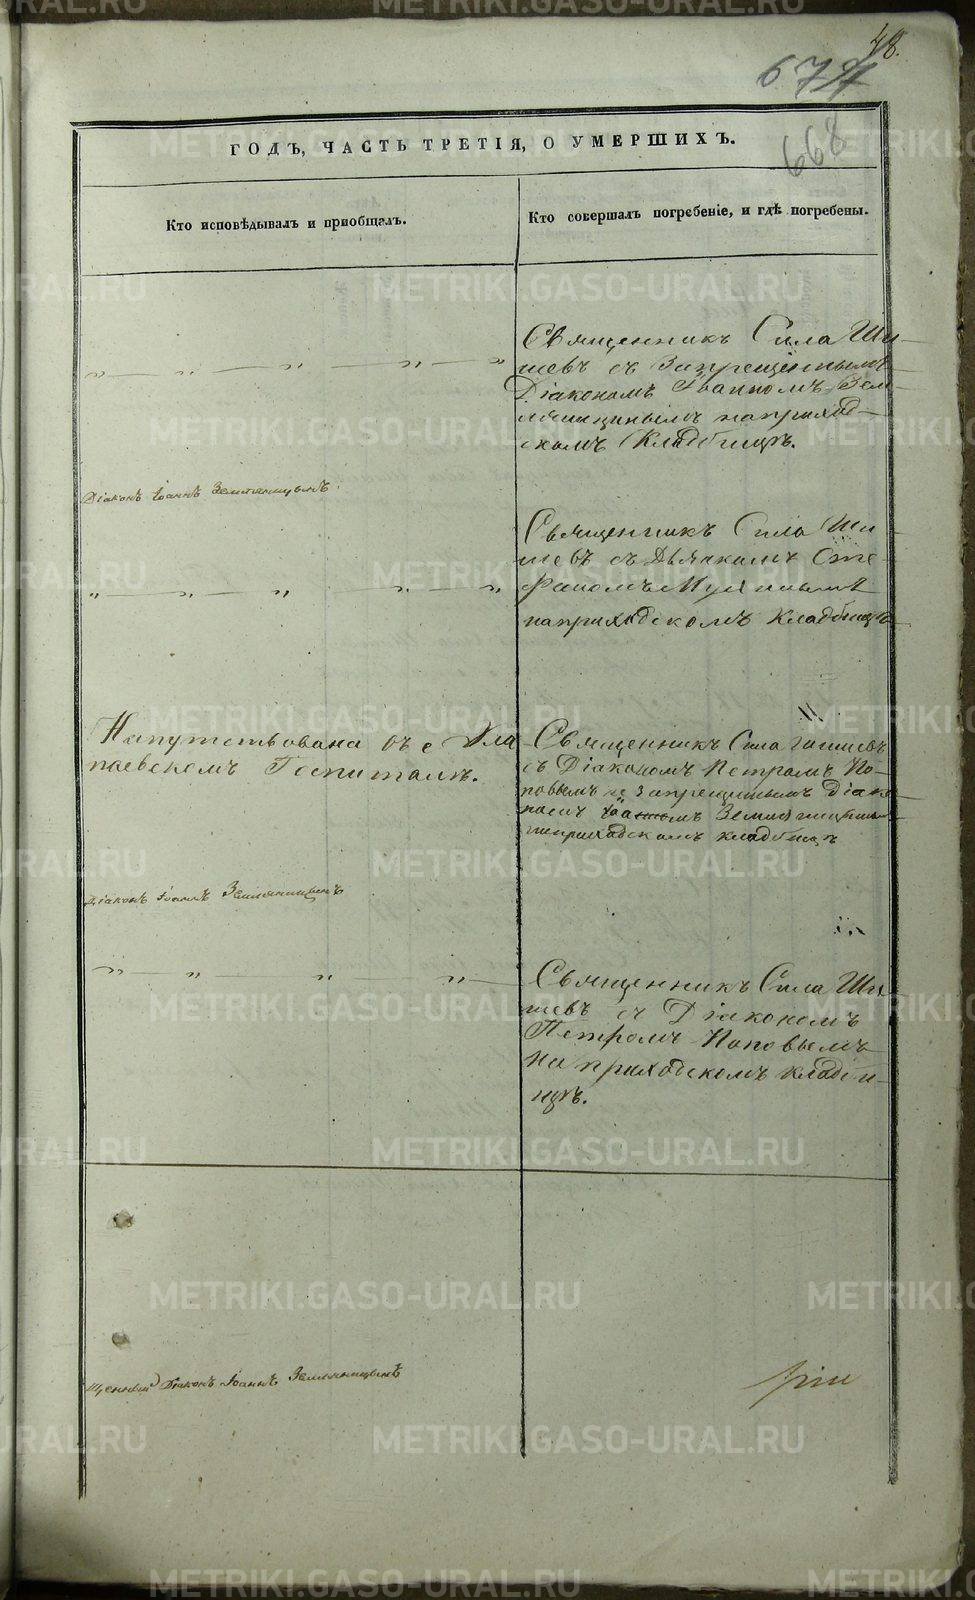 48.
671
668
ГОДЪ, ЧАСТЬ ТРЕТІЯ, О УМЕРШИХЪ.
Кто исповѣдывалъ и пріобщалъ.
Кто совершалъ погребеніе, и гдѣ погребены.
" — " — " — " — "
Священникъ Сила Ши-
шевъ съ Запрещеннымъ
Діакономъ Іоанномъ Зем-
ляницынымъ на приход-
скомъ Кладбищѣ.
Діаконъ Іоаннъ Земляницынъ
" — " — " — " — "
Священникъ Сила Ши-
шевъ съ Дьячкомъ Сте-
фаномъ
на приходскомъ Кладбищѣ
Напутствована въ Ала
паевскомъ Госпиталѣ.
Священникъ Сила Шишевъ
съ Діакономъ Петромъ По-
повымъ и запрещеннымъ Діако
номъ Іоанномъ Земляницынымъ
на приходскомъ кладбищѣ
Діаконъ Іоаннъ Земляницынъ
" — " — " — "
Священникъ Сила Ши-
шевъ съ Діакономъ
Петромъ Поповымъ
на приходскомъ кладби-
щѣ.
щенный Діаконъ Іоаннъ Земляницынъ
METRIKI.GASO-URAL.RU